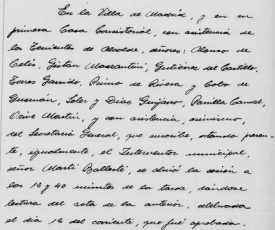 En la Villa de Madrid, y en su
primera Casa Consistorial, con asistencia de
los Tenientes de Alcalde, señores Alonso de
Celis, Gistau Mazzantini, Gutiérrez del Castillo,
Torres Garrido, Primo de Rivera y Cobo de
Guzmán, Soler y Díaz Guijarro, Parrilla Candel,
Martín, y con asistencia, asimismo,
del Secretario General, que suscribe, estando presen-
te, igualmente, el Interventor municipal,
señor Martí Ballesté, se abrió la sesión a
las 13 y 40 minutos de la tarde, dándose
lectura del acta de la anterior, celebrada
el día 16 del corriente, que fué aprobada.